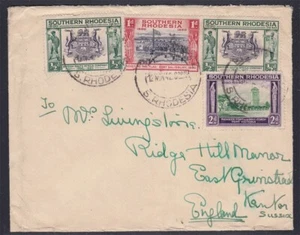 SOUTHERN RHODESIA
SOUTHERN RHODESIA
SOUTHERN RHODESIA
1d
S. RHODESIA
S. RHODESIA
SOUTHERN RHODESIA
2d 2d
To
Mrs Livingstone,
Ridge Hill Manor
East Grinstead
Kent
England
Sussex